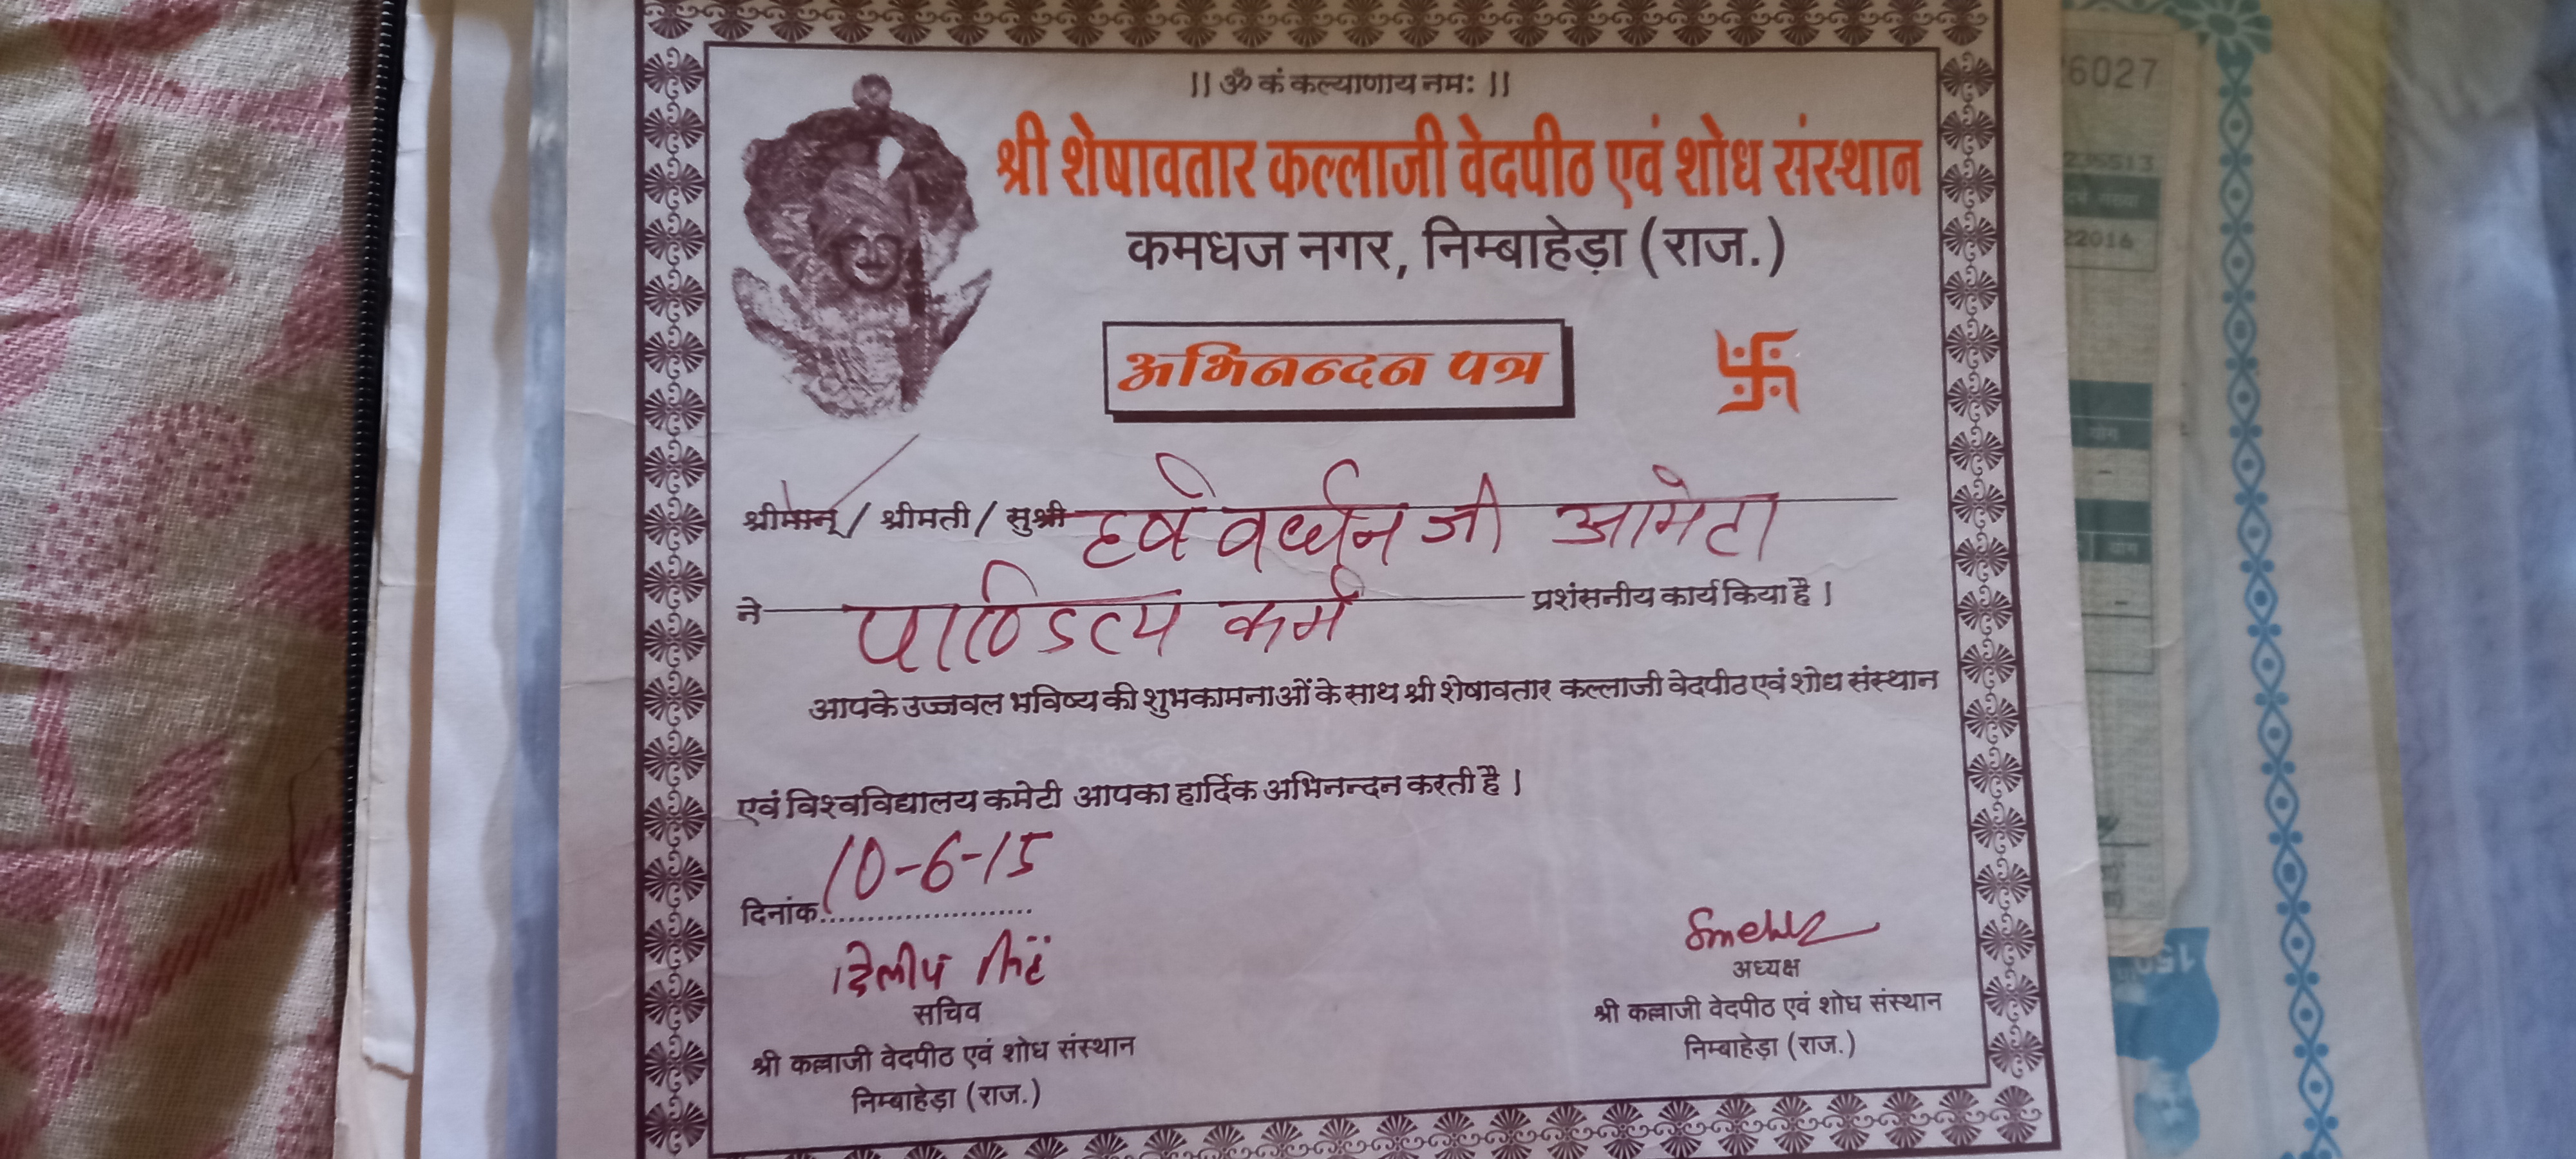 || ॐ कं कल्याणाय नमः ||
श्री शेषावतार कल्लाजी वेदपीठ एवं शोध संस्थान
कमधज नगर, निम्बाहेड़ा (राज.)
अभिनन्दन पत्र
श्रीमान् / श्रीमती / सुश्री हर्ष वर्धन जी आमेटा
ने पाण्डित्य कर्म प्रशंसनीय कार्य किया है।
आपके उज्जवल भविष्य की शुभकामनाओं के साथ श्री शेषावतार कल्लाजी वेदपीठ एवं शोध संस्थान
एवं विश्वविद्यालय कमेटी आपका हार्दिक अभिनन्दन करती है।
दिनांक 10-6-15
दिलीप
सचिव
श्री कल्लाजी वेदपीठ एवं शोध संस्थान
निम्बाहेड़ा (राज.)
अध्यक्ष
श्री कल्लाजी वेदपीठ एवं शोध संस्थान
निम्बाहेड़ा (राज.)
6027
22016
योग
योग